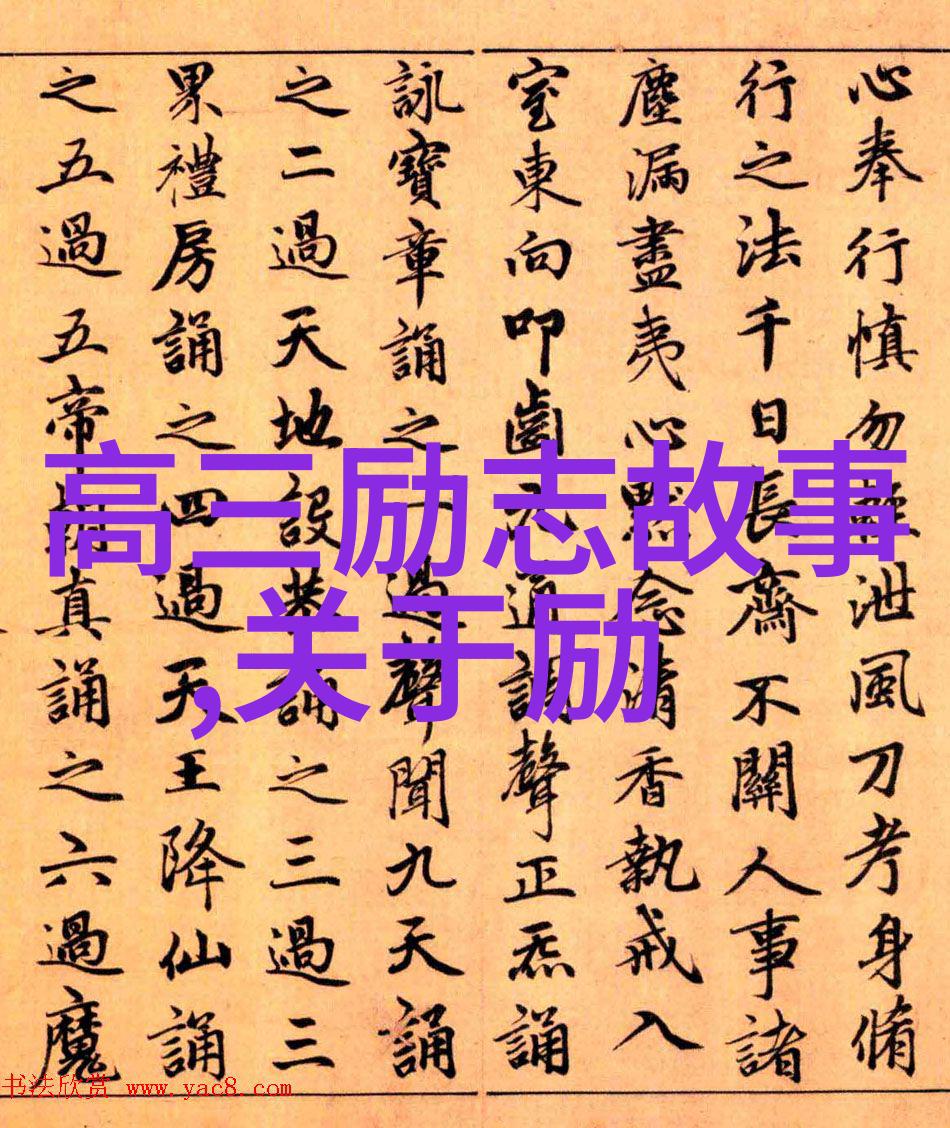 心奉行慎勿輕泄風刀考身脩
行之法千日長齋不關人事諸
塵漏盡夷心默念清香執戒入
室東向叩齒九通調聲正炁誦
詠寶章誦之一過聲聞九天誦
之二過天地設恭誦之三過三
界禮房誦之四過天王降仙誦
之五過五帝朝真誦之六過魔
高三励志故事
,关于励
书法欣赏 www.yac8.com